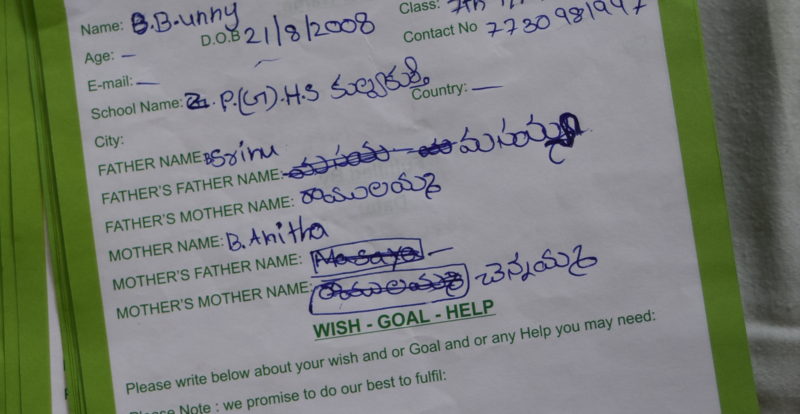 Name: B.B.unny Class: 7th
D.O.B 21/8/2008
Age: – Contact No 7730981997
E-mail: –
School Name: Z.P.(G).H.S కల్వకుర్తి Country: –
City:
FATHER NAME: B Srinu
FATHER'S FATHER NAME: మసయ్య
FATHER'S MOTHER NAME: రాములమ్మ
MOTHER NAME: B.Anitha
MOTHER'S FATHER NAME: Masaya –
MOTHER'S MOTHER NAME: రాములమ్మ చెన్నయమ్మ
WISH - GOAL - HELP
Please write below about your wish and or Goal and or any Help you may need:
Please Note : we promise to do our best to fulfil: